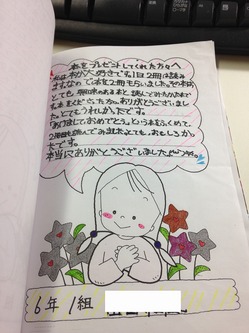 本をプレゼントしてくれた方々へ
私は本が大好きで、1日2冊は読み
ますなので本を2冊もらいました。その本は、
とても、興味のある本と、読んでみたかった本で
す。本をくださった方々、ありがとうございまし
た。とてもうれしかったです。
「あけましておめでとう。」という本をふくめて、
2冊読んでみました。とても、おもしろかっ
たです。
本当にありがとうございました。
6年1組